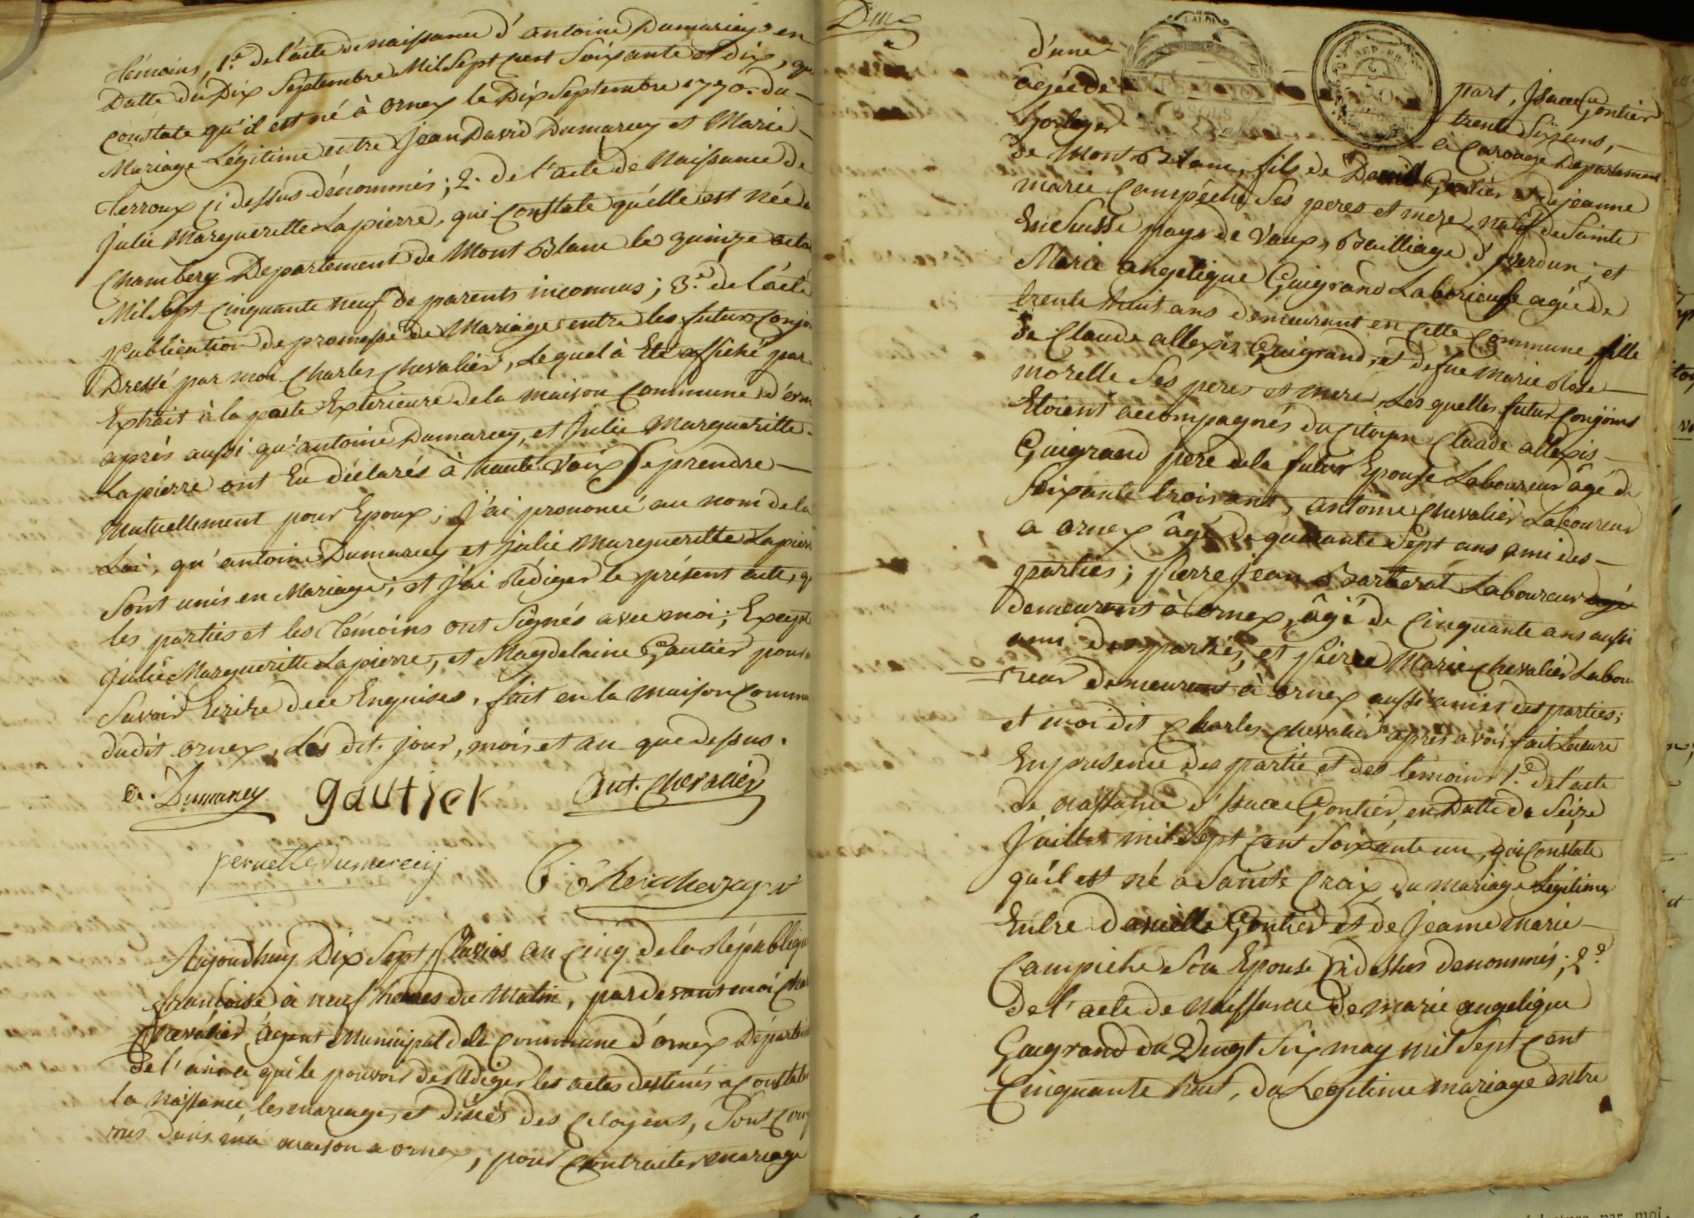 témoins, 1.º de l'acte de naissance d'antoine Dumarcey, en
Datte du Dix Septembre Mil Sept Cent Soixante et dix, qu
constate qu'il est né à ornex le Dix Septembre 1770. du
Mariage Légitime entre Jean David Dumarcey et Marie
Terroux ci dessus dénommés; 2.º de l'acte de Naissance de
Julie Margueritte Lapierre, qui constate qu'elle est née à
Chambery Departement de Mont Blanc le quinze
Mil Sept Cinquante neuf de parents inconnus; 3.º de l'acte
Publication de promesse de Mariage entre les futurs Conjo
Dressé par moi Charles Chevalier, lequel à Eté affiché par
Extrait à la porte Exterieure de la maison Commune d'orn
après aussi qu'antoine Dumarcey, et Julie Marguerite
Lapierre ont Eu déclarés à haute Voix Se prendre
Mutuellement pour Epoux; J'ai prononcé au nom de la
Loi, qu'antoine Dumarcey et Julie Marguerette Lapierr
Sont unis en Mariage; et j'ai Rédiger le présent acte, q
les parties et les témoins ont Signés avec moi; Except
Julie Marguerite Lapierre, et Magdelaine Gautier pour
Savoir Ecrire de ce Enquises. fait en la maison Commu
dudit ornex, les dit. jour, mois et an que dessus.
a. Dumarcey gautier Ant. Chevalier
pernette dumarcey
C. Chevalier
Aujourdhuy Dix Sept Pluviôs an Cinq de la Républiqu
française à neuf heures du Matin, par devant moi Cha
Chevalier Agent Municipal de la Commune d'ornex Départ
de l'ain a qui le pouvoir de Rédiger les actes destinés a Constater
la Naissance, les mariages, et Décès des Citoyens, Sont
dans ma maison a ornex, pour Contracter mariage
Dux
d'une part, Isaac Gontier
agée de trente Six ans,
horloger à Carouge Departement
de Mont Blanc, fils de Daniel Gontier et de jeanne
marie Campiche, Ses peres et mere, natif de Sainte
En Suisse pays de Vaux, Bailliage d'yverdun; et
Marie angelique Guigrand Laborieuse agée de
trente huit ans demeurant en Cette Commune, fille
de Claude allexis Guigrand, et de fue Marie Rose
morelle Ses peres et mere, Les quelles futur Conjoins
Etoient accompagnés du Citoyen Claude allexis
Guigrand pere de la futur Epouse Laboureur âgé de
Soixante trois ans, antoine Chevalier Laboureur
a ornex âgé de quarante Sept ans ami des
parties; Pierre Jean Barberat Laboureur agé
demeurant à ornex, âgé de Cinquante ans aussi
ami des parties, et Pierre Marie Chevalier Labou
reur demeurant à ornex aussi amis des parties;
et moi dit Charles Chevalier après avoir fait Lecture
En presence des partie et des temoins 1.º de l'acte
de naissance d'Isaac Gontier, en Datte de Seize
Juillet mil Sept Cent Soixante un, qui Constate
qu'il est né a Sainte Croix du mariage Légitime
Entre Danielle Gontier et de Jeanne Marie
Campiche Son Epouse Ci dessus denommés; 2.º
de l'acte de Naissance de marie angelique
Guigrand du Vingt Six may mil Sept Cent
Cinquante huit, du Legitime mariage entre